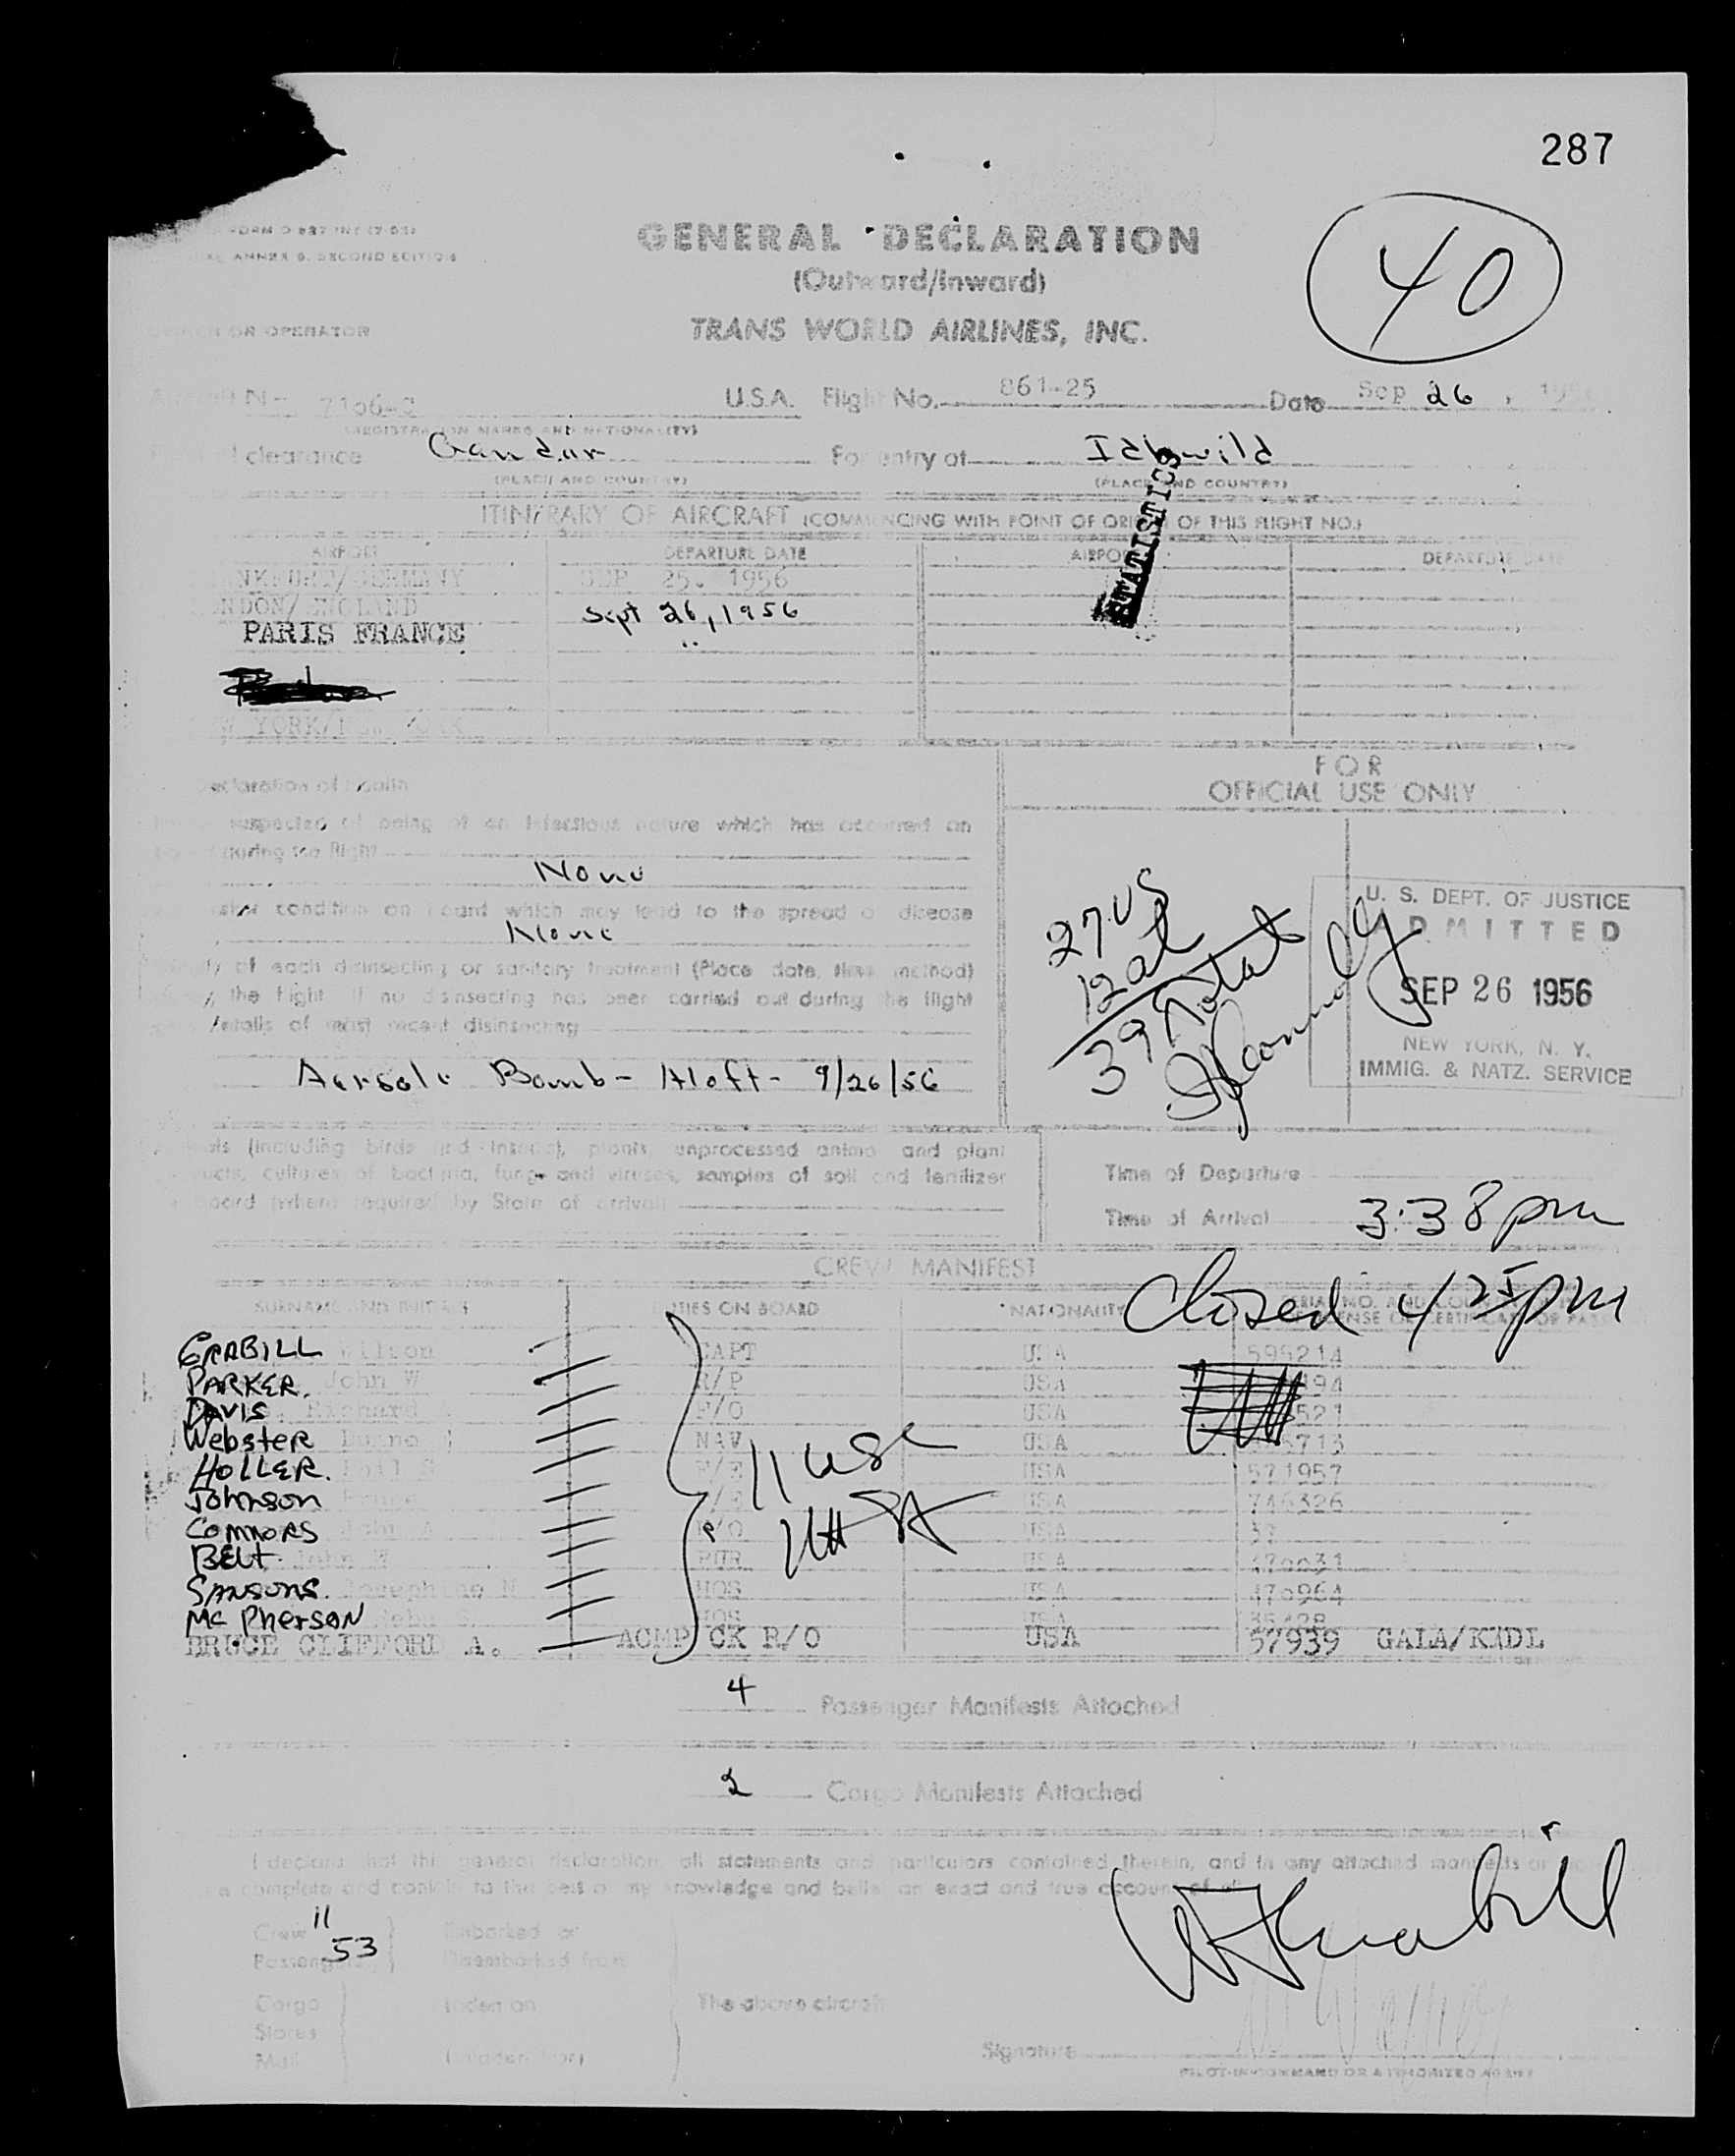 287
40
ANNEX 9, SECOND EDITION
GENERAL DECLARATION
(Outward/Inward)
OR OPERATOR
TRANS WORLD AIRLINES, INC.
U.S.A. Flight No. 861-25 Date Sep 26, 195
(REGISTRATION MARKS AND NATIONALITY)
clearance Gander For entry at Idlewild
(PLACE AND COUNTRY) (PLACE AND COUNTRY)
STATISTICS
ITINERARY OF AIRCRAFT (COMMENCING WITH POINT OF ORIGIN OF THIS FLIGHT NO.)
AIRPORT DEPARTURE DATE AIRPORT DEPARTURE DATE
NKFURT/GERMANY SEP 25. 1956
NDON/ENGLAND Sept 26, 1956
PARIS FRANCE "
W YORK/NEW YORK
FOR
OFFICIAL USE ONLY
Declaration of Health
suspected of being of an infectious nature which has occurred on
during the flight
None
condition on board which may lead to the spread of disease
None
of each disinsecting or sanitary treatment (Place date, time method)
the flight If no disinsecting has been carried out during the flight
details of most recent disinsecting
Aerosole Bomb - Aloft - 9/26/56
27 US
12 al
39 Total
U. S. DEPT. OF JUSTICE
ADMITTED
SEP 26 1956
NEW YORK, N. Y.
IMMIG. & NATZ. SERVICE
(including birds and insects), plants, unprocessed animal and plant
cultures of bacteria, fungi and viruses, samples of soil and fertilizer
board (where required by State of arrival)
Time of Departure
Time of Arrival 3:38 pm
CREW MANIFEST
Closed 4/25 pm
SURNAME AND INITIALS DUTIES ON BOARD NATIONALITY
GRABILL Wilson CAPT USA 595214
PARKER. John W R/P USA 94
DAVIS. Richard F/O USA 521
Webster NAV USA 713
HOLLER. F/E USA 571957
Johnson USA 746326
CONNORS John R/O USA
BELT. John W PUR USA
SANSONS. Josephine N HOS USA 470964
Mc PHERSON HOS USA
BRUCE CLIFFORD A. ACMP CK R/O USA 57939 GALA/KNDL
11 USC
4 Passenger Manifests Attached
2 Cargo Manifests Attached
I declare that this general declaration, all statements and particulars contained therein, and in any attached manifests
complete and contain to the best of my knowledge and belief an exact and true account of
Crew 11
Passengers 53
Embarked on
Disembarked from
Cargo
Stores
Mail
Laden on
Unladen from
The above aircraft
Signature
PILOT-IN-COMMAND OR AUTHORIZED AGENT